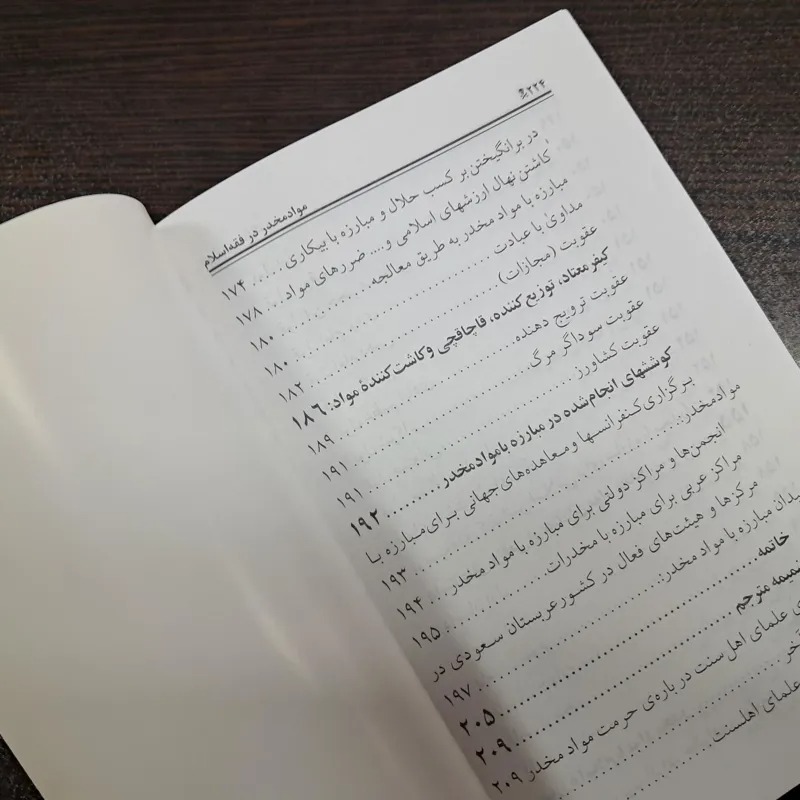 ۲۲۴
موادمخدر در فقه اسلام
در برانگیختن بر کسب حلال و مبارزه با بیکاری ...... ۱۷۴
کاشتن نهال ارزشهای اسلامی و.... ضررهای مواد... ۱۷۸
مبارزه با مواد مخدر به طریق معالجه ........ ۱۸۰
مداوی با عبادت ........ ۱۸۰
عقوبت (مجازات) ........ ۱۸۲
کیفر معتاد، توزیع کننده، قاچاقچی و کاشت کنندهٔ مواد: ۱۸۶
عقوبت ترویج دهنده ........ ۱۸۹
عقوبت سوداگر مرگ ........ ۱۹۱
عقوبت کشاورز ........ ۱۹۱
کوششهای انجام شده در مبارزه با موادمخدر ........ ۱۹۲
برگزاری کنفرانسها و معاهده‌های جهانی برای مبارزه با
موادمخدر: ........ ۱۹۳
انجمن‌ها و مراکز دولتی برای مبارزه با مواد مخدر .... ۱۹۴
مراکز عربی برای مبارزه با مخدرات ........ ۱۹۵
مرکزها و هیئت‌های فعال در کشور عربستان سعودی در
یدان مبارزه با مواد مخدر: ........ ۱۹۷
خاتمه ........ ۲۰۵
میمه مترجم ........ ۲۰۹
ی علمای اهل سنت در باره‌ی حرمت مواد مخدر ۲۰۹
علمای اهلسنت ........